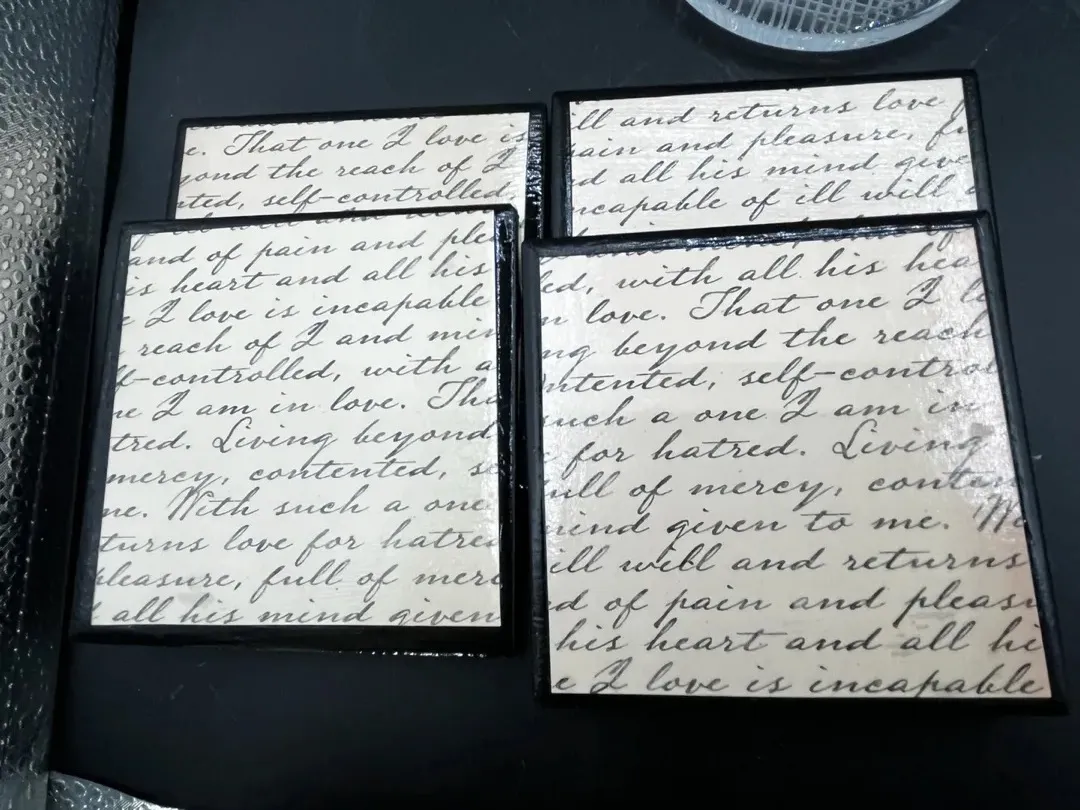 e. That one I love is
yond the reach of I
nted, self-controlled,
ill and returns love f
pain and pleasure, fu
d all his mind give
ncapable of ill will a
and of pain and plea
is heart and all his
e I love is incapable
reach of I and min
lf-controlled, with a
ne I am in love. Tha
tred. Living beyond
mercy, contented, se
me. With such a one
turns love for hatred
pleasure, full of merc
all his mind given
ed, with all his hea
n love. That one I lo
ng beyond the reach
ntented, self-control
such a one I am in
for hatred. Living
full of mercy, conten
mind given to me. Wi
ill will and returns
d of pain and pleasu
his heart and all hi
e I love is incapable